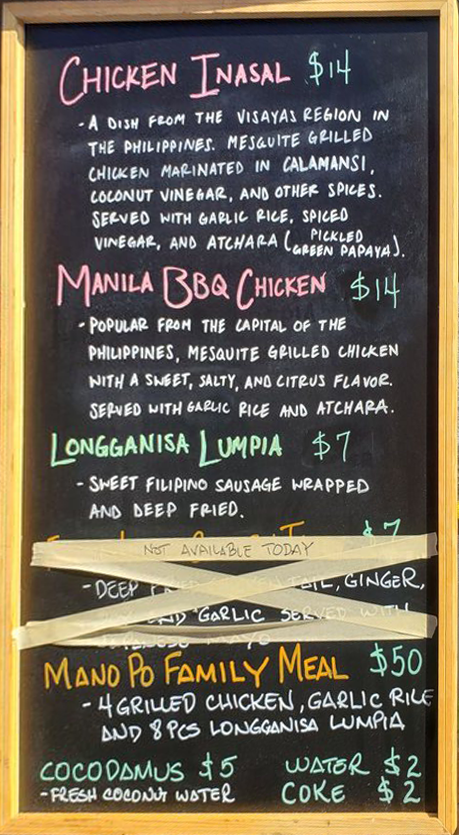 CHICKEN INASAL $14
- A DISH FROM THE VISAYAS REGION IN
THE PHILIPPINES. MESQUITE GRILLED
CHICKEN MARINATED IN CALAMANSI,
COCONUT VINEGAR, AND OTHER SPICES.
SERVED WITH GARLIC RICE, SPICED
VINEGAR, AND ATCHARA (PICKLED GREEN PAPAYA).
MANILA BBQ CHICKEN $14
- POPULAR FROM THE CAPITAL OF THE
PHILIPPINES, MESQUITE GRILLED CHICKEN
WITH A SWEET, SALTY, AND CITRUS FLAVOR.
SERVED WITH GARLIC RICE AND ATCHARA.
LONGGANISA LUMPIA $7
- SWEET FILIPINO SAUSAGE WRAPPED
AND DEEP FRIED.
$7
NOT AVAILABLE TODAY
- DEEP TAIL, GINGER,
GARLIC SERVED WITH
MANO PO FAMILY MEAL $50
- 4 GRILLED CHICKEN, GARLIC RICE
AND 8 PCS LONGGANISA LUMPIA
COCODAMUS $5 WATER $2
- FRESH COCONUT WATER COKE $2